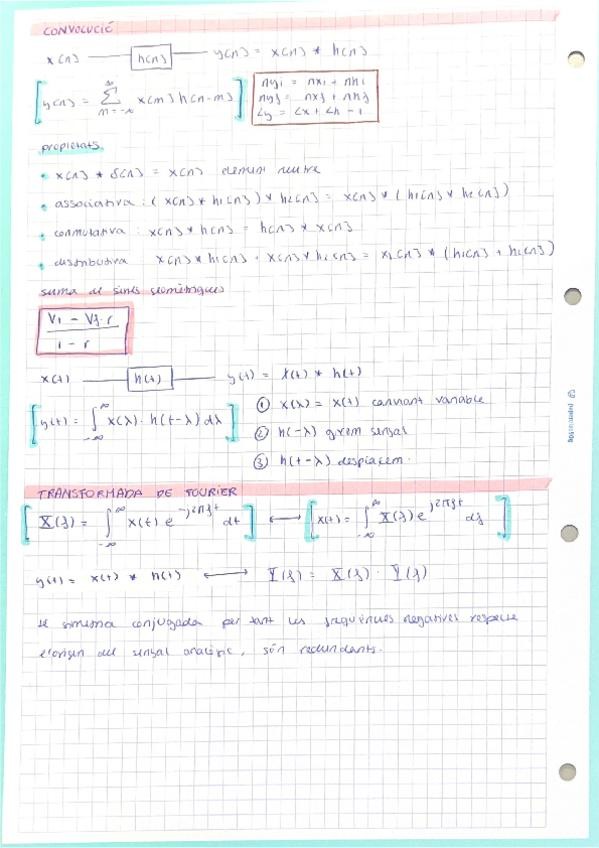 CONVOLUCIÓ
x[n] h[n] y[n] = x[n] * h[n]
y[n] = ∞ Σ m=-∞ x[m] h[n-m]
nyi = nxi + nhi
nyf = nxf + nhf
Ly = Lx + Lh - 1
propietats
• x[n] * δ[n] = x[n] element neutre
• associativa: (x[n] * h1[n]) * h2[n] = x[n] * (h1[n] * h2[n])
• conmutativa: x[n] * h[n] = h[n] * x[n]
• distributiva x[n] * h1[n] + x[n] * h2[n] = x[n] * (h1[n] + h2[n])
suma de series geomètriques
Vi - Vf·r
1 - r
x(t) h(t) y(t) = x(t) * h(t)
y(t) = ∫ ∞ -∞ x(λ) · h(t-λ) dλ
① x(λ) = x(t) canviant variable
② h(-λ) girem senyal
③ h(t-λ) desplaçem.
TRANSFORMADA DE FOURIER
X(f) = ∫ ∞ -∞ x(t) e^-j2πft dt ⟷ x(t) = ∫ ∞ -∞ X(f) e^j2πft df
y(t) = x(t) * h(t) ⟷ Y(f) = X(f) · Y(f)
conjugada per tant les freqüències negatives respecte
l'origen del senyal analògic, són redundants.
paperworldbcn